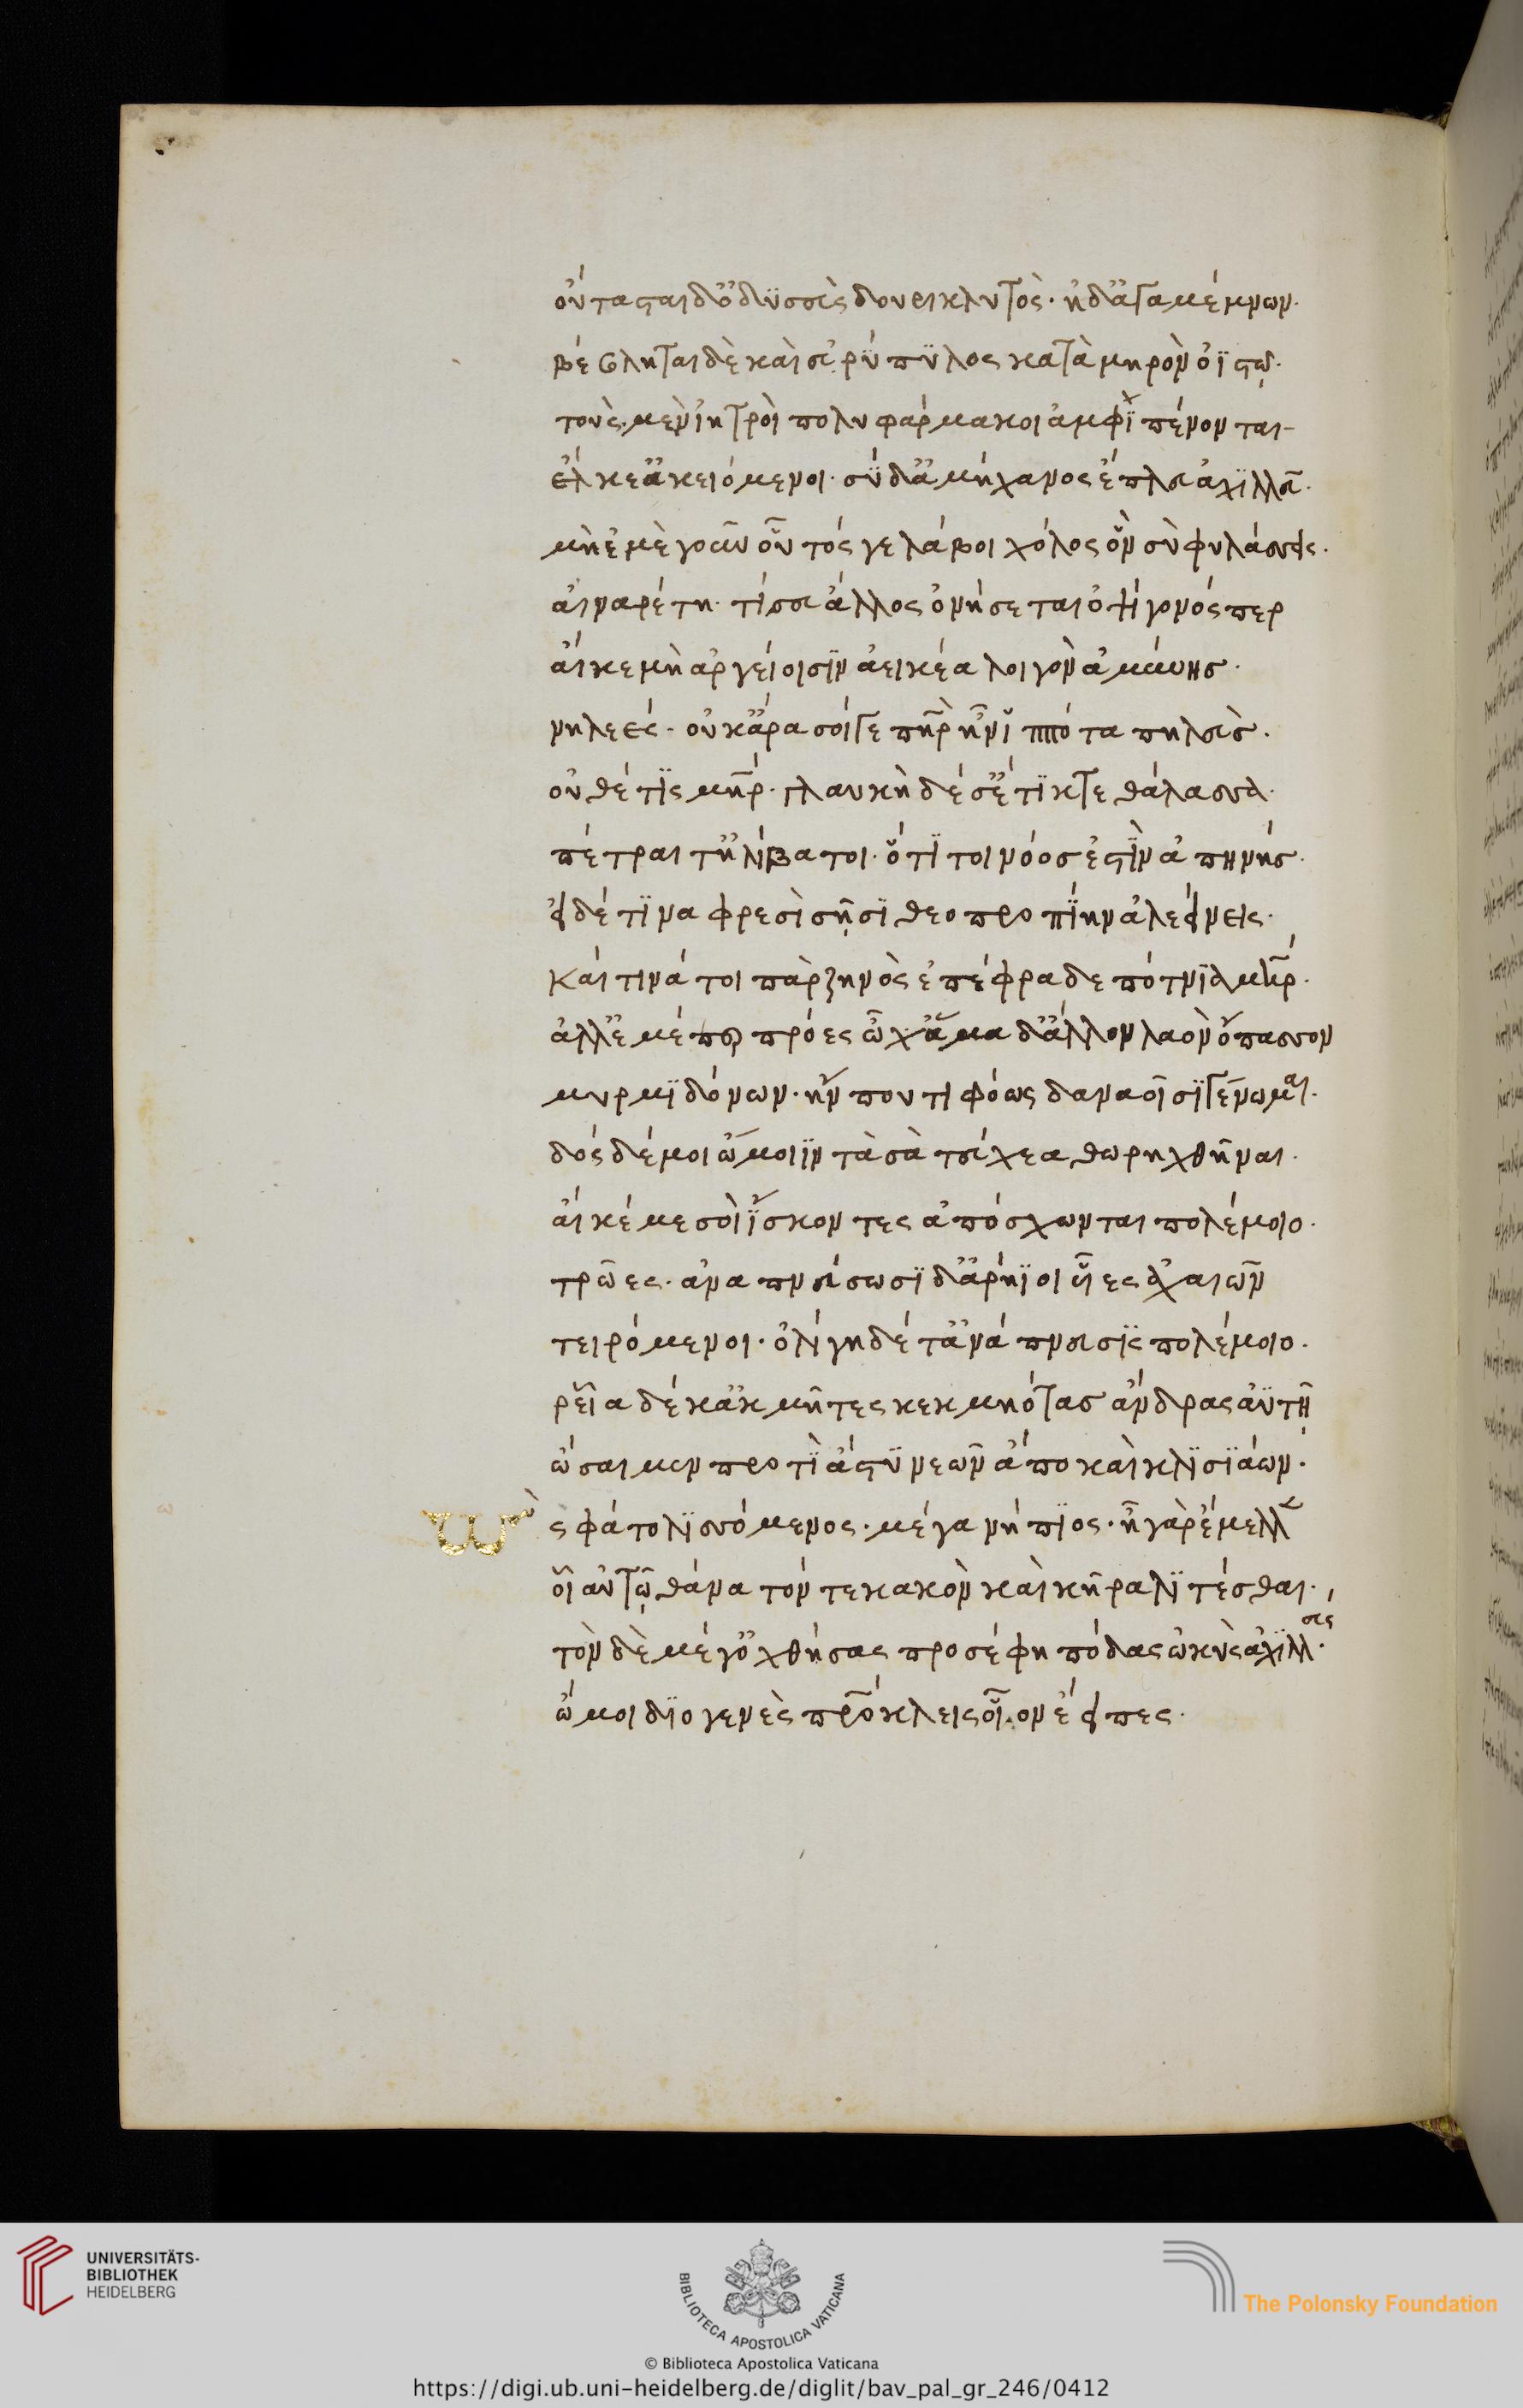 οὔτασται δ' ὀδυσσεὺς δουρικλυτὸς· ἠδ' ἀγαμέμνων·
βέβληται δὲ καὶ εὐρύπυλος κατὰ μηρὸν ὀϊστῷ·
τοὺς μὲν ἰητροὶ πολυφάρμακοι ἀμφιπένονται
ἕλκε' ἀκειόμενοι· σὺ δ' ἀμήχανος ἔπλευ ἀχιλλεῦ·
μὴ ἐμὲ γοῦν οὗτός γε λάβοι χόλος ὃν σὺ φυλάσσεις·
αἰναρέτη· τί σευ ἄλλος ὀνήσεται ὀψίγονός περ
αἴ κε μὴ ἀργείοισιν ἀεικέα λοιγὸν ἀμύνης·
νηλεές· οὐκ ἄρα σοί γε πατὴρ ἦν ἱππότα πηλεὺς·
οὐ θέτις μήτηρ· γλαυκὴ δέ σ' ἔτικτε θάλασσα·
πέτραι τ' ἠλίβατοι· ὅτι τοι νόος ἐστὶν ἀπηνής·
εἰ δέ τινα φρεσὶ σῇσι θεοπροπίην ἀλεείνεις·
καί τινά τοι πὰρ ζηνὸς ἐπέφραδε πότνια μήτηρ·
ἀλλ' ἐμέ περ πρόες ὦχ' ἅμα δ' ἄλλον λαὸν ὄπασσον
μυρμιδόνων· ἤν που τι φόως δαναοῖσι γένωμαι·
δὸς δέ μοι ὤμοιιν τὰ σὰ τεύχεα θωρηχθῆναι·
αἴ κέ με σοὶ ἴσκοντες ἀπόσχωνται πολέμοιο·
τρῶες· ἀναπνεύσωσι δ' ἀρήϊοι υἷες ἀχαιῶν
τειρόμενοι· ὀλίγη δέ τ' ἀνάπνευσις πολέμοιο·
ῥεῖα δέ κ' ἀκμῆτες κεκμηότας ἄνδρας ἀϋτῇ
ὤσαιμεν προτὶ ἄστυ νεῶν ἄπο καὶ κλισιάων·
Ὣς φάτο λισσόμενος· μέγα νήπιος· ἦ γὰρ ἔμελλεν
οἷ αὐτῷ θάνατόν τε κακὸν καὶ κῆρα λιτέσθαι·
τὸν δὲ μέγ' ὀχθήσας προσέφη πόδας ὠκὺς ἀχιλλεύς·
ὤμοι διογενὲς πατρόκλεις οἷον ἔειπες·
UNIVERSITÄTS-
BIBLIOTHEK
HEIDELBERG
BIBLIOTECA APOSTOLICA VATICANA
The Polonsky Foundation
© Biblioteca Apostolica Vaticana
https://digi.ub.uni-heidelberg.de/diglit/bav_pal_gr_246/0412